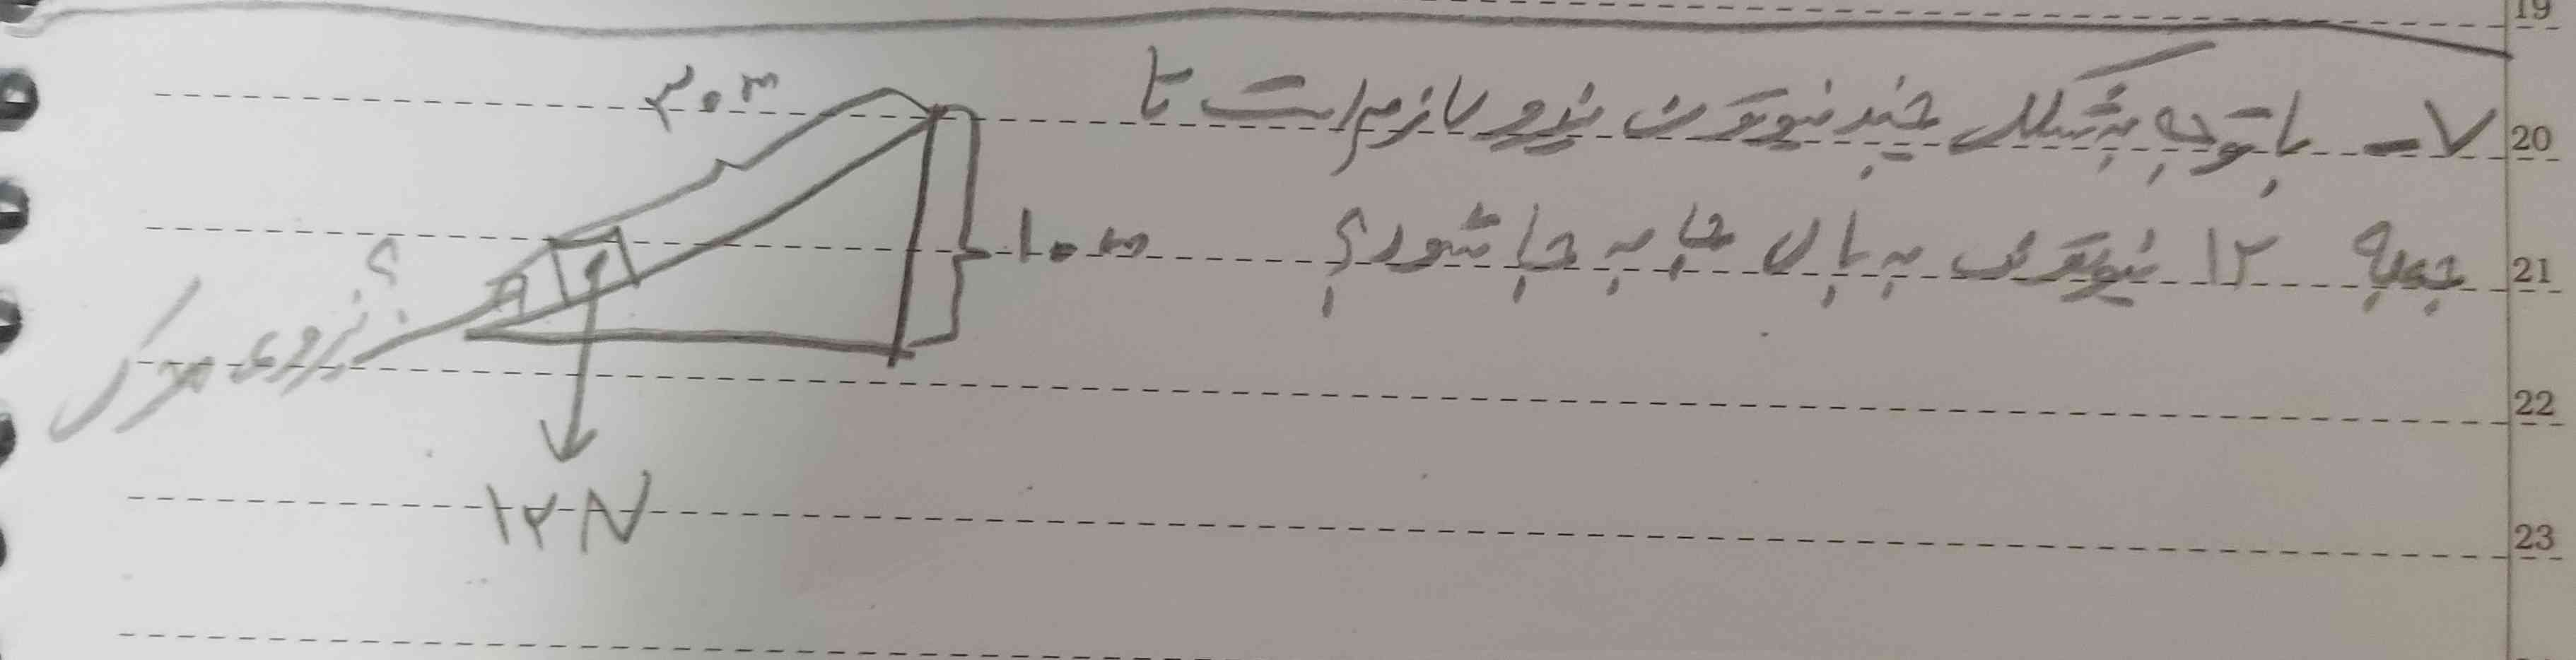 19
20
۷- با توجه به شکل چند نیوتون نیرو لازم است تا
21
جعبه ۱۲ نیوتونی به بالا جا به جا شود؟
۲۰m
۱۰m
؟
نیروی محرک
۱۲N
22
23